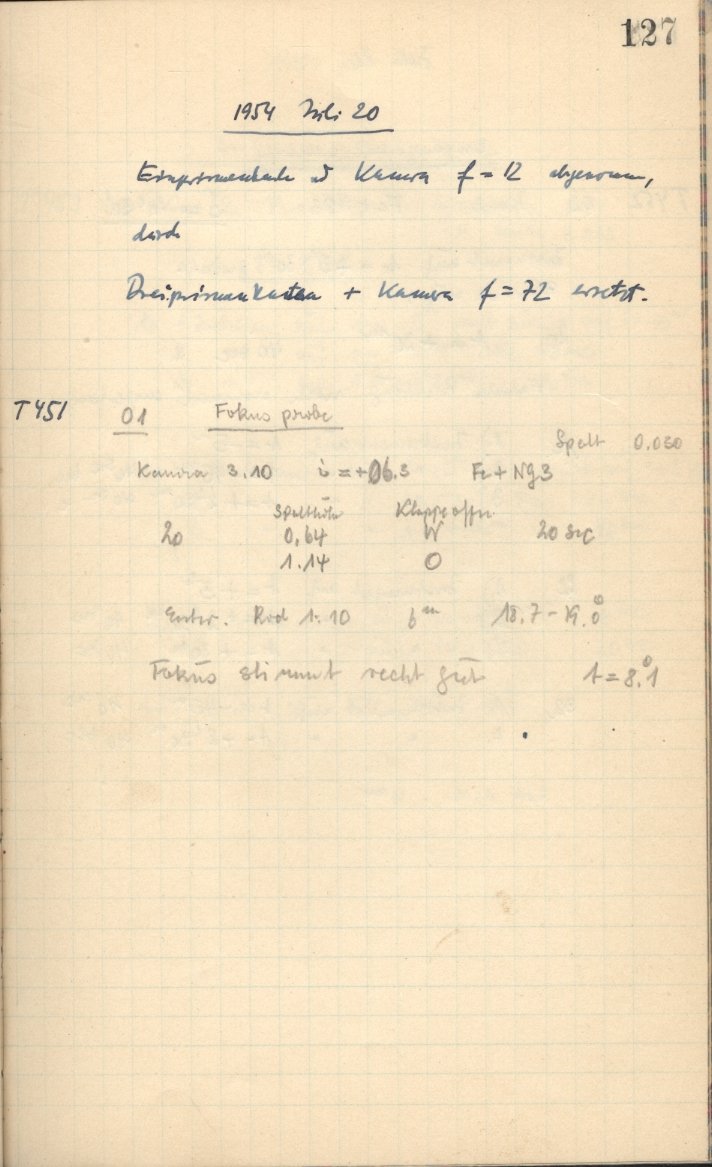 127
1954 Juli 20
Einprismenkasten u Kamera f = 12 abgenommen,
durch
Dreiprismenkasten + Kamera f = 72 ersetzt.
T451 01 Fokusprobe
Spalt 0.030
Kamera 3.10 i = +06.3 Fe + Ng3
Spalthöhe Klappe offen
20 0,64 W 20 sec
1.14 O
Entw. Rod 1:10 6m 18.7 - 19.0°
Fokus stimmt recht gut t = 8.°1